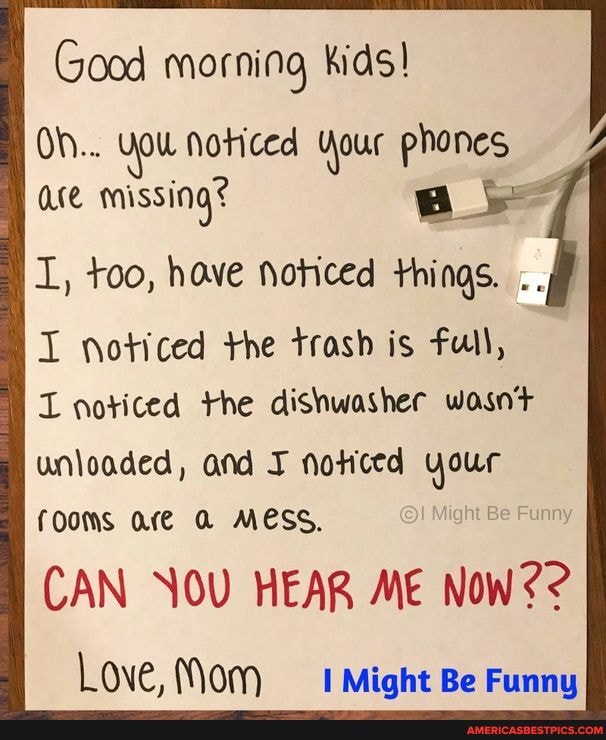 Good morning Kids!
Oh... you noticed your phones
are missing?
I, too, have noticed things.
I noticed the trash is full,
I noticed the dishwasher wasn't
unloaded, and I noticed your
rooms are a mess.
©I Might Be Funny
CAN YOU HEAR ME NOW??
Love, Mom
I Might Be Funny
AMERICASBESTPICS.COM